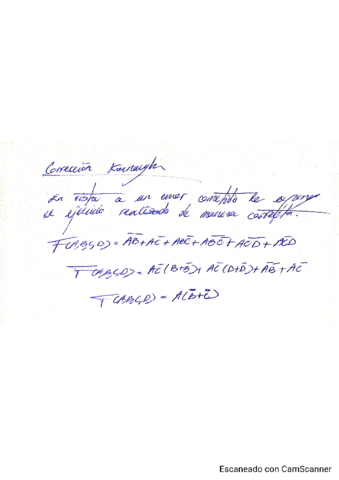 Corrección Karnaugh
En vista a un error cometido le expongo
el ejercicio realizado de manera correcta.
F(A,B,C,D) = AB̄+AC̄+ABC̄+AB̄C̄+AC̄D̄+AC̄D
F(A,B,C,D) = AC̄(B+B̄)+AC̄(D+D̄)+AB̄+AC̄
F(A,B,C,D) = A(B̄+C̄)
Escaneado con CamScanner